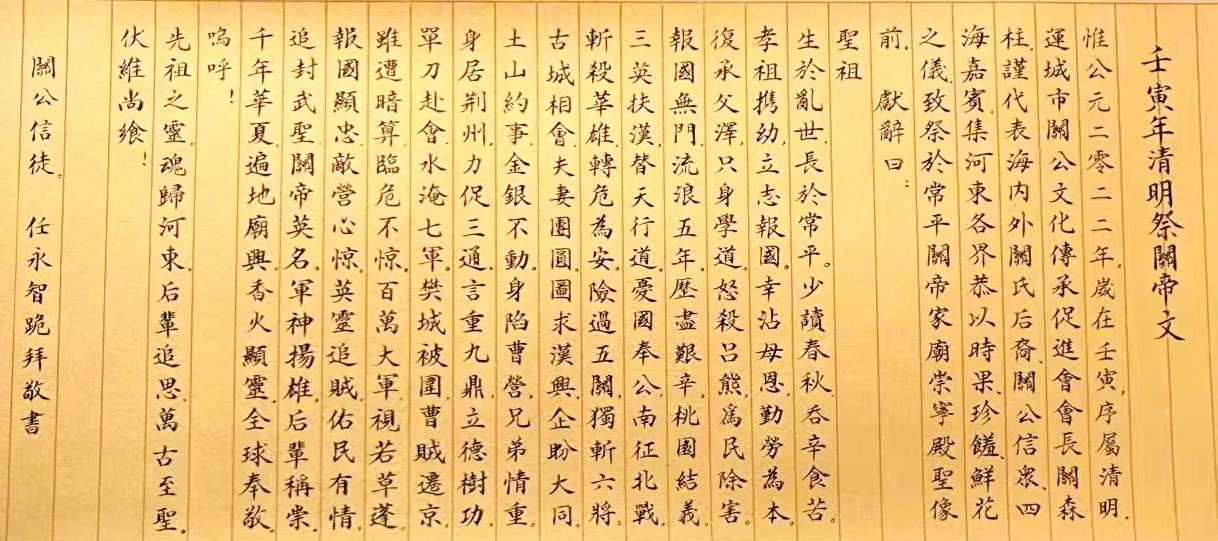 壬寅年清明祭關帝文
惟公元二零二二年,歲在壬寅,序屬清明.
運城市關公文化傳承促進會會長關森
柱.謹代表海内外關氏后裔、關公信眾、四
海嘉賓.集河東各界恭以時果.珍饈.鮮花
之儀.致祭於常平關帝家廟崇寧殿聖像
前.獻辭曰:
聖祖
生於亂世.長於常平。少讀春秋.吞辛食苦。
孝祖携幼.立志報國。幸沾母恩.勤勞為本。
復承父澤.只身學道。怒殺呂熊.爲民除害。
報國無門.流浪五年。歷盡艱辛.桃園結義。
三英扶漢.替天行道。憂國奉公.南征北戰。
斬殺華雄.轉危為安。險過五關.獨斬六將。
古城相會.夫妻團圓。圖求漢興.企盼大同。
土山約事.金銀不動。身陷曹營.兄弟情重。
身居荆州.力促三通。言重九鼎.立德樹功。
單刀赴會.水淹七軍。樊城被圍.曹賊遷京。
雖遭暗算.臨危不惊。百萬大軍.視若草蓬。
報國顯忠.敵營心惊。英靈追賊.佑民有情。
追封武聖.關帝英名。軍神揚雄.后輩稱崇。
千年華夏.遍地廟興。香火顯靈.全球奉敬。
嗚呼!
先祖之靈.魂歸河東。后輩追思.萬古至聖。
伏維尚飨!
關公信徒。 任永智跪拜敬書